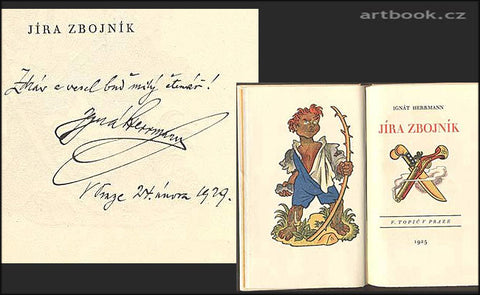 artbook.cz
JÍRA ZBOJNÍK
Zdráv a vesel buď milý čtenář!
Ignát Herrmann
V Praze 24. února 1929.
IGNÁT HERRMANN
JÍRA ZBOJNÍK
F. TOPIČ V PRAZE
1925